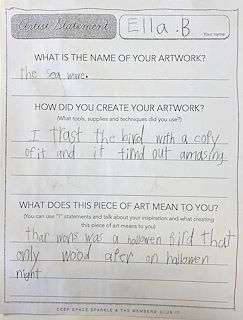 Artist Statement
Ella.B
Your name
WHAT IS THE NAME OF YOUR ARTWORK?
the sea wave.
HOW DID YOU CREATE YOUR ARTWORK?
(What tools, supplies and techniques did you use?)
I trast the bird with a copy
of it and it tirnd out amasing.
WHAT DOES THIS PIECE OF ART MEAN TO YOU?
(You can use "I" statements and talk about your inspiration and what creating
this piece of art means to you)
thar was a hallowen bird that
only wood aper on hallowen
night.
DEEP SPACE SPARKLE & THE MEMBERS' CLUB